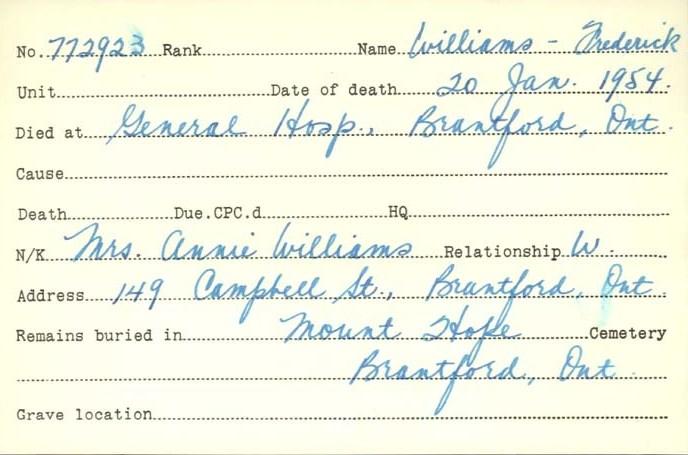 No. 772923 Rank Name Williams - Frederick
Unit Date of death 20 Jan. 1954.
Died at General Hosp., Brantford, Ont.
Cause
Death Due.CPC.d HQ
N/K Mrs. Annie Williams Relationship W.
Address 149 Campbell St., Brantford, Ont
Remains buried in Mount Hope Cemetery
Brantford, Ont.
Grave location